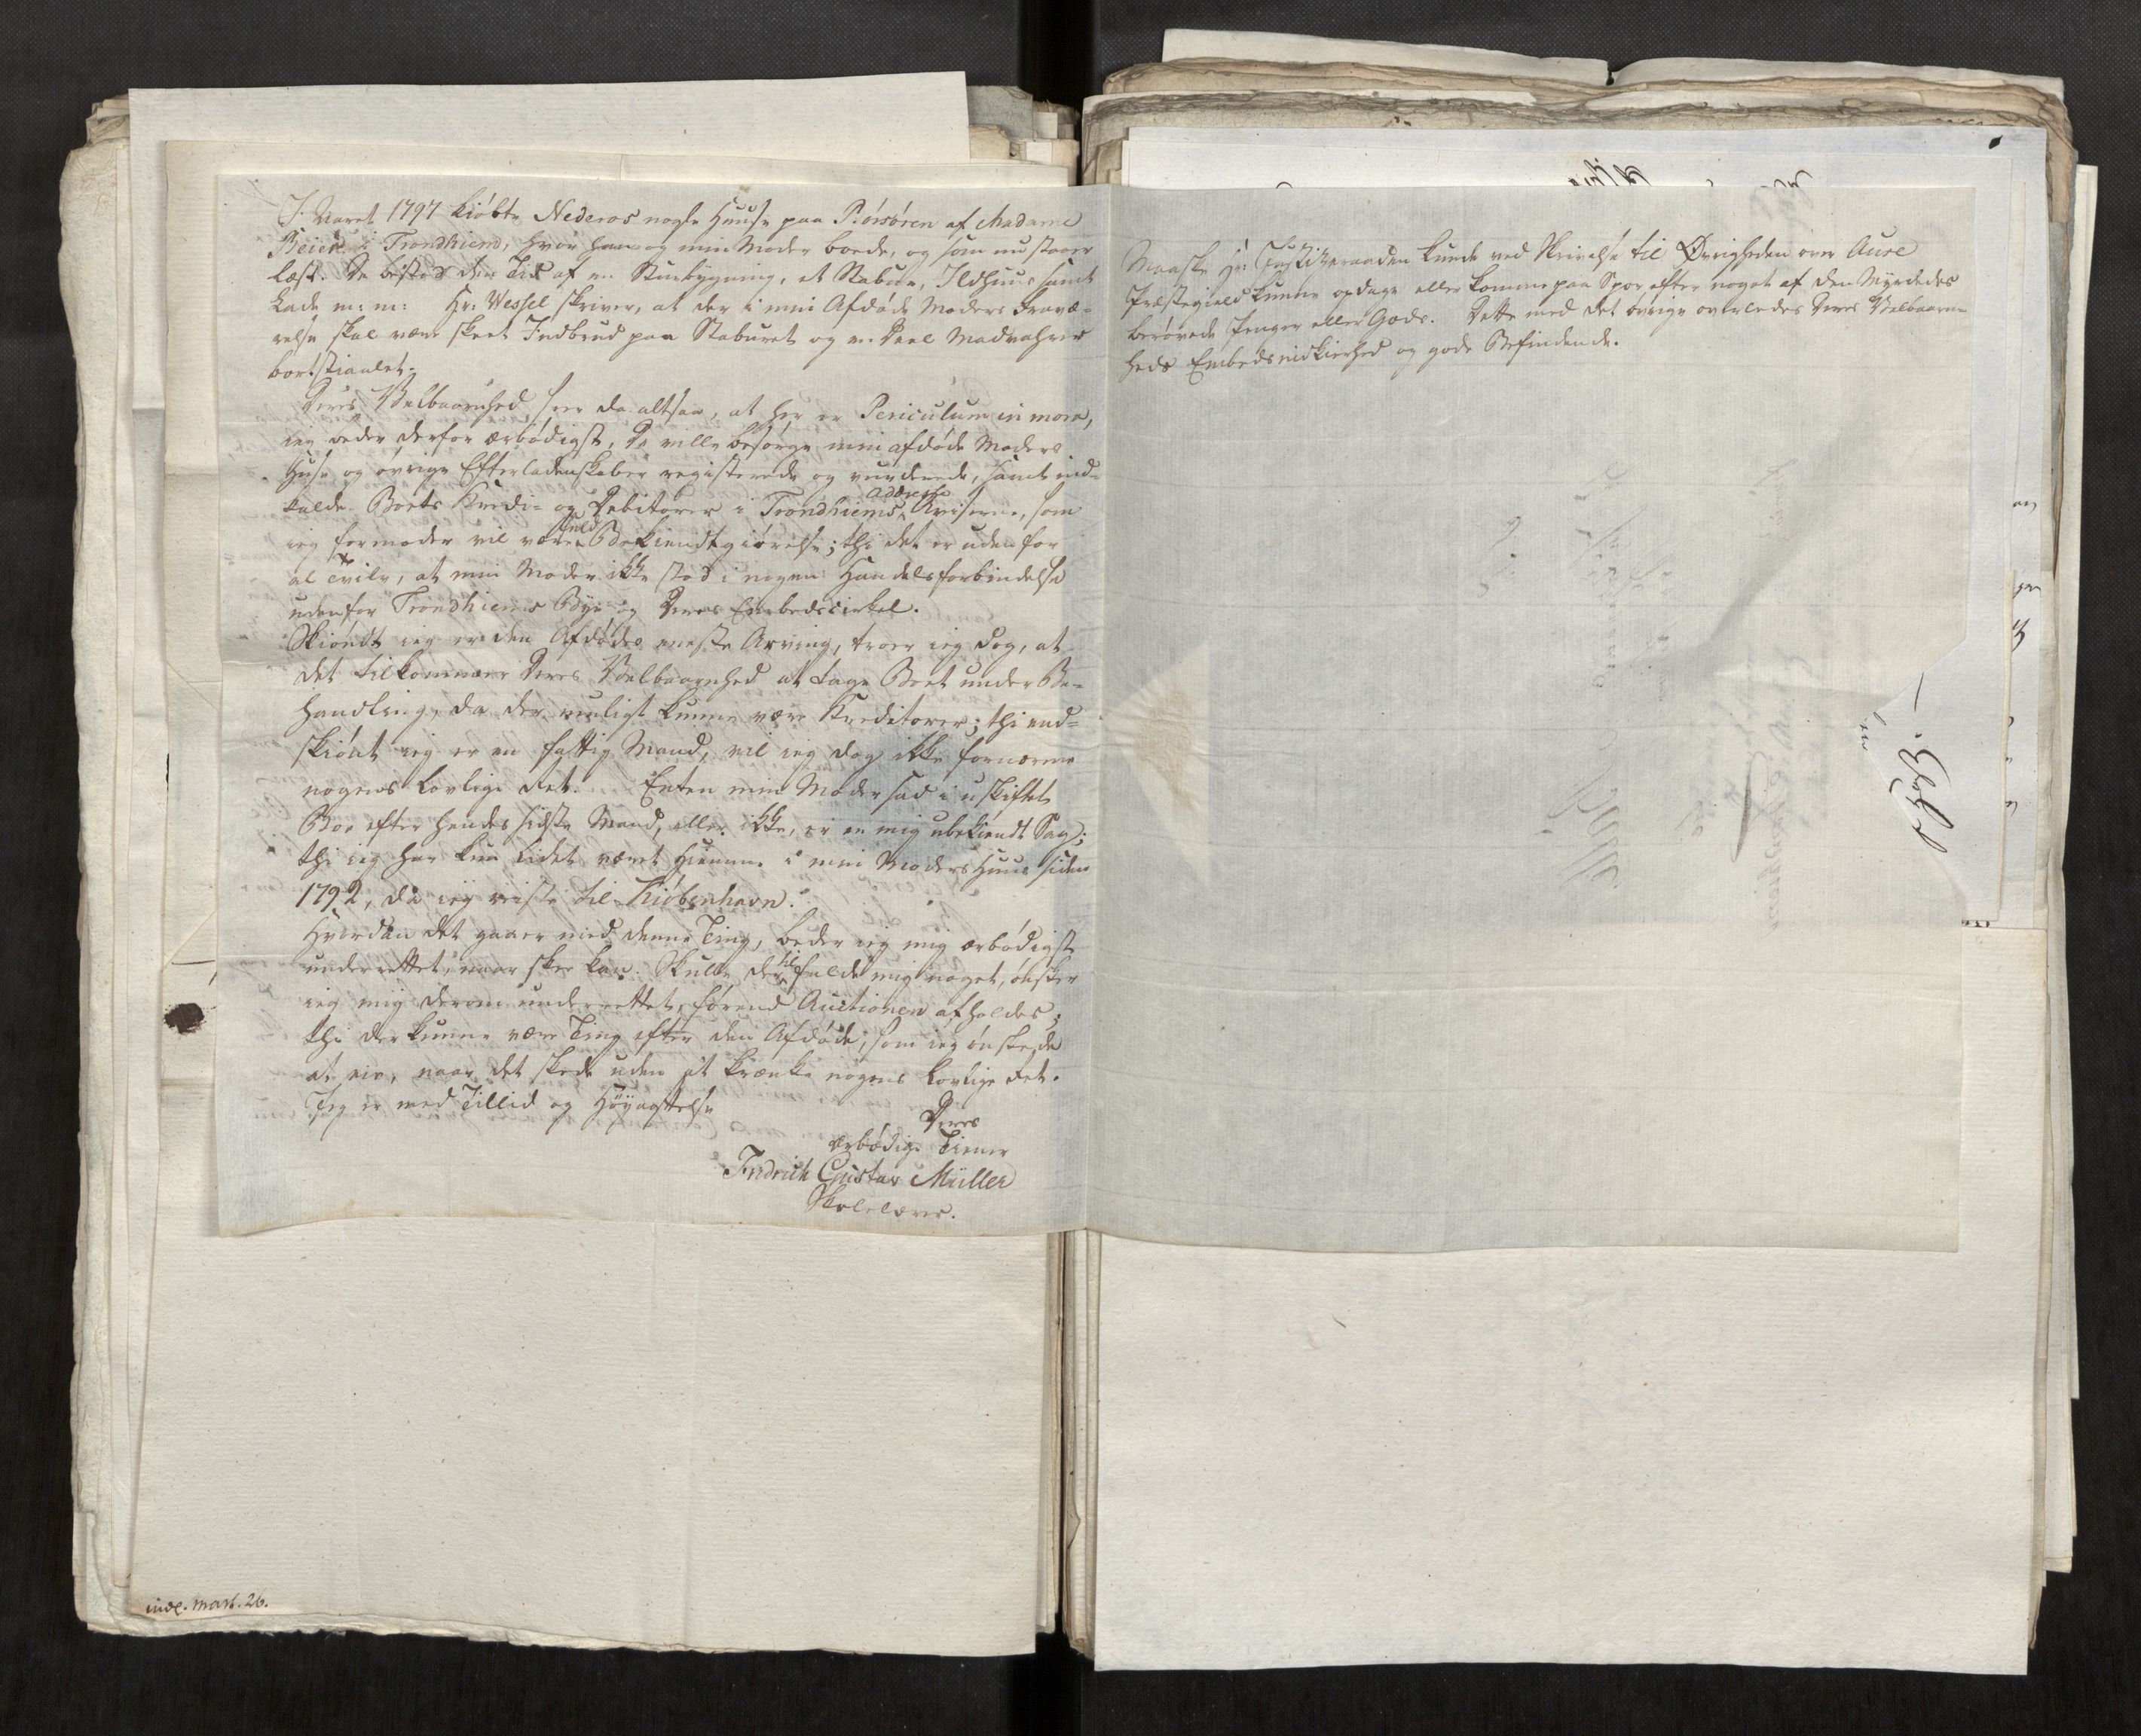 I Aaret 1797 kiøbte Nederos nogle Huuse paa Børsøren af Madame
Beier i Trondhiem, hvor han og min Moder boede, og som nu staaer
læst. De bestod den Tid af en Stuebygning, et Stabur, Ildhuus samt
Lade m: m: Hr: Wessel skriver, at der i min Afdøde Moders Fravæ-
relse skal være skeet Indbrud paa Staburet og en Deel Madvahrer
bortstiaalet.
Deres Velbaarnhed seer da altsaa, at her er Periculum in mora,
ieg beder derfor ærbødigst, De ville besørge min afdøde Moders
Huse og øvrige Efterladenskaber registerede og vurderede, samt ind-
kalde Boets Kredi- og Debitorer i Trondhiems Adresse Aviserne, som
ieg formoder vil være fuld Bekiendtgiørelse; thi det er uden for
al Tvivl, at min Moder ikke stod i nogen Handelsforbindelse
udenfor Trondhiems Bye og Deres Embedscirkel.
Skiøndt ieg er den Afdødes eneste Arving, troer ieg dog, at
det tilkommer Deres Velbaarnhed at tage Boet under Be-
handling, da der muligt kunne være Kreditorer; thi end-
skiønt ieg er en fattig Mand, vil ieg dog ikke fornærme
nogens lovlige Ret. Enten min Moder sad i uskiftet
Boe efter hendes sidste Mand, eller ikke, er en mig ubekiendt Sag;
thi ieg har kun lidet været hiemme i min Moders Huus siden
1792, da ieg reiste til Kiøbenhavn.
Hvordan det gaaer med denne Ting, beder ieg mig ærbødigst
underrettet, naar skee kan. Skulle der tilfalde mig noget, ønsker
ieg mig derom underrettet, førend Auctionen afholdes;
thi der kunne være Ting efter den Afdøde, som ieg ønskede
at eie, naar det skede uden at krænke nogens lovlige Ret.
Jeg er med Tillid og Høyagtelse
Deres
ærbødige Tiener
Fridrich Gustav Müller
Skolelærer.
inde. Mart. 26.
Maaske Hr: Justitzraaden kunde ved Skrivelse til Øvrigheden over Aure
Præstegield kunne opdage eller komme paa Spor efter noget af den Myrdedes
berøvede Penger eller Gods. Dette med det øvrige overlades Deres Velbaarn-
heds Embedsnidkierhed og gode Befindende.